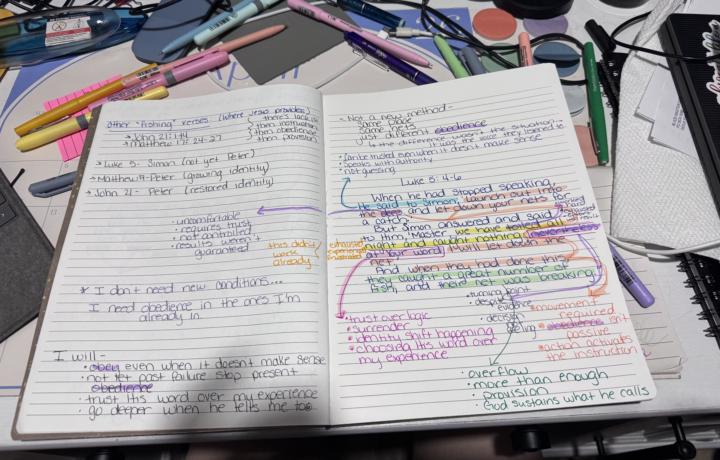 Other "Fishing" verses (where Jesus provides)
→ John 21:1-14
→ Matthew 17:24-27
there's lack
then instruction
then obedience
then provision
→ Luke 5- Simon (not yet Peter)
→ Matthew 4- Peter (growing identity)
→ John 21- Peter (restored identity)
• uncomfortable
• requires trust
• not controlled
• results weren't
guaranteed
this didn't
work
already
* I don't need new conditions...
I need obedience in the ones I'm
already in.
I will-
• obey even when it doesn't make sense
• not let past failure stop present
obedience
• trust His word over my experience
• go deeper when he tells me to
- Not a new method-
same place
same nets
just different obedience
↳ the difference wasn't the situation...
it was the voice they listened to
• Can be trusted even when it doesn't make sense
• speaks with authority
• not guessing
Luke 5:4-6
When he had stopped speaking,
He said to Simon, "Launch out into
the deep and let down your nets for
a catch."
But Simon answered and said
to Him, "Master, we have toiled all
night and caught nothing; nevertheless
at Your word I will let down the
net."
And when they had done this,
they caught a great number of
fish, and their net was breaking.
exhausted
experienced
frustrated
• trust over logic
• surrender
• identity shift happening
• choosing His word over
my experience
• turning point
• despite
evidence
• decision
feeling
• movement
required
• obedience isn't
passive
• action activates
the instruction
• overflow
• more than enough
• provision
• God sustains what he calls
April